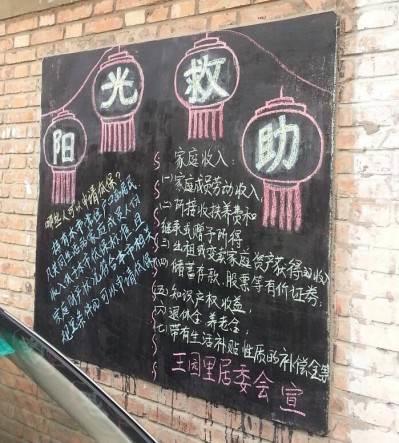 阳光救助
哪些人可以申请低保?
持有本市常住户口的居民
凡共同生活的家庭成员人均
收入低于本市低保标准且
家庭财产状况符合本市相关
规定条件的可以申请低保
家庭收入:
(一)家庭成员劳动收入,
(二)所接收扶养费和
继承或赠予所得
(三)出租或变卖家庭资产获得的收入
(四)储蓄存款、股票等有价证券;
(五)知识产权收益,
(六)退休金、养老金,
(七)带有生活补贴性质的补偿金等
王园里居委会 宣